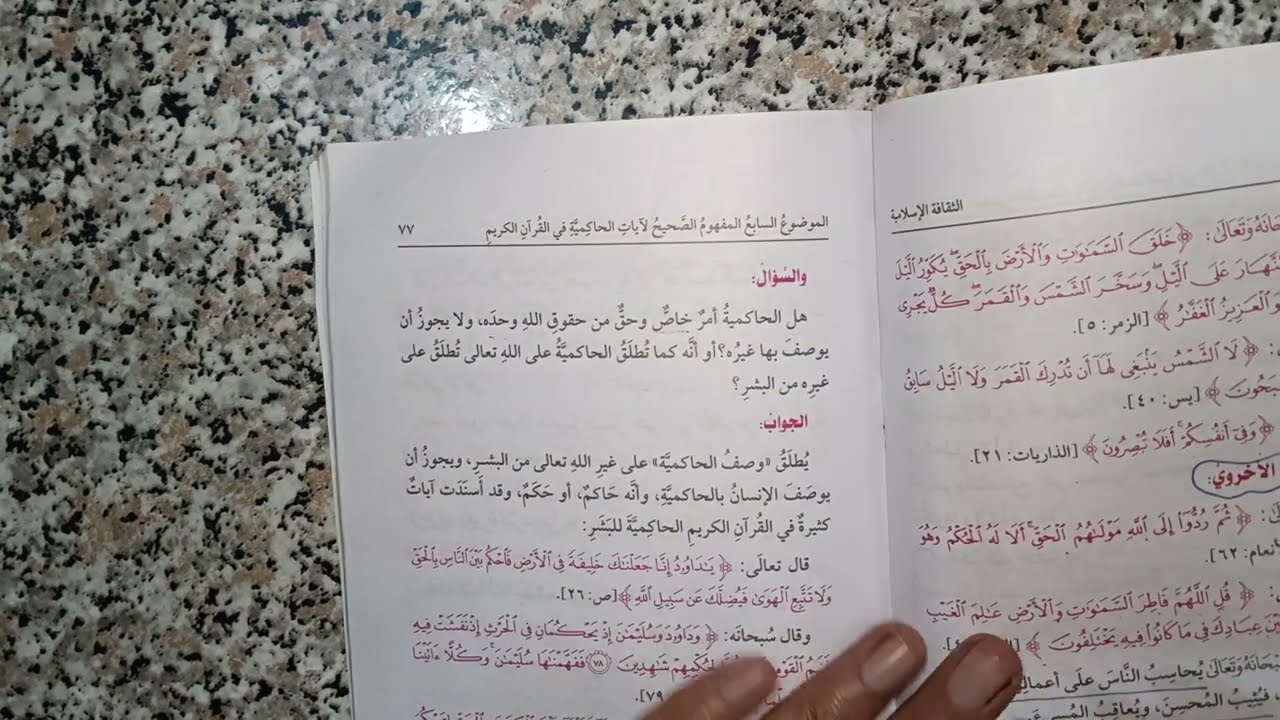 الثقافة الإسلامية
﴿خَلَقَ ٱلسَّمَٰوَٰتِ وَٱلۡأَرۡضَ بِٱلۡحَقِّۖ يُكَوِّرُ ٱلَّيۡلَ
عَلَى ٱلَّيۡلِۖ وَسَخَّرَ ٱلشَّمۡسَ وَٱلۡقَمَرَۖ كُلّٞ يَجۡرِي
ٱلۡعَزِيزُ ٱلۡغَفَّٰرُ﴾ [الزمر: ٥].
﴿لَا ٱلشَّمۡسُ يَنۢبَغِي لَهَآ أَن تُدۡرِكَ ٱلۡقَمَرَ وَلَا ٱلَّيۡلُ سَابِقُ
﴾ [يس: ٤٠].
﴿وَفِيٓ أَنفُسِكُمۡۚ أَفَلَا تُبۡصِرُونَ﴾ [الذاريات: ٢١].
الأخروي:
﴿ثُمَّ رُدُّوٓاْ إِلَى ٱللَّهِ مَوۡلَىٰهُمُ ٱلۡحَقِّۚ أَلَا لَهُ ٱلۡحُكۡمُ وَهُوَ
٦٢].
﴿قُلِ ٱللَّهُمَّ فَاطِرَ ٱلسَّمَٰوَٰتِ وَٱلۡأَرۡضِ عَٰلِمَ ٱلۡغَيۡبِ
عِبَادِكَ فِي مَا كَانُواْ فِيهِ يَخۡتَلِفُونَ﴾
يُحاسِبُ النَّاسَ على
فيُثيبُ المُحسِنَ، ويُعاقِبُ
الموضوعُ السابعُ المفهومُ الصَّحيحُ لآياتِ الحاكِميَّةِ في القُرآنِ الكريمِ ٧٧
والسُؤال:
هل الحاكميةُ أمرٌ خاصٌّ وحقٌّ من حقوقِ اللهِ وحدَه، ولا يجوزُ أن
يوصفَ بها غيرُه؟ أو أنَّه كما تُطلَقُ الحاكميَّةُ على اللهِ تعالى تُطلَقُ على
غيرِه من البشرِ؟
الجواب:
يُطلَقُ «وصفُ الحاكميَّة» على غيرِ اللهِ تعالى من البشرِ، ويجوزُ أن
يوصَفَ الإنسانُ بالحاكميَّةِ، وأنَّه حَاكمٌ، أو حَكمٌ، وقد أَسنَدَت آياتٌ
كثيرةٌ في القُرآنِ الكريمِ الحاكِميَّةَ للبَشَرِ:
قال تعالَى: ﴿يَٰدَاوُۥدُ إِنَّا جَعَلۡنَٰكَ خَلِيفَةٗ فِي ٱلۡأَرۡضِ فَٱحۡكُم بَيۡنَ ٱلنَّاسِ بِٱلۡحَقِّ
وَلَا تَتَّبِعِ ٱلۡهَوَىٰ فَيُضِلَّكَ عَن سَبِيلِ ٱللَّهِ﴾ [ص: ٢٦].
وقال سُبحانَه: ﴿وَدَاوُۥدَ وَسُلَيۡمَٰنَ إِذۡ يَحۡكُمَانِ فِي ٱلۡحَرۡثِ إِذۡ نَفَشَتۡ فِيهِ
لِحُكۡمِهِمۡ شَٰهِدِينَ ٧٨ فَفَهَّمۡنَٰهَا سُلَيۡمَٰنَۚ وَكُلًّا ءَاتَيۡنَا
٧٩].